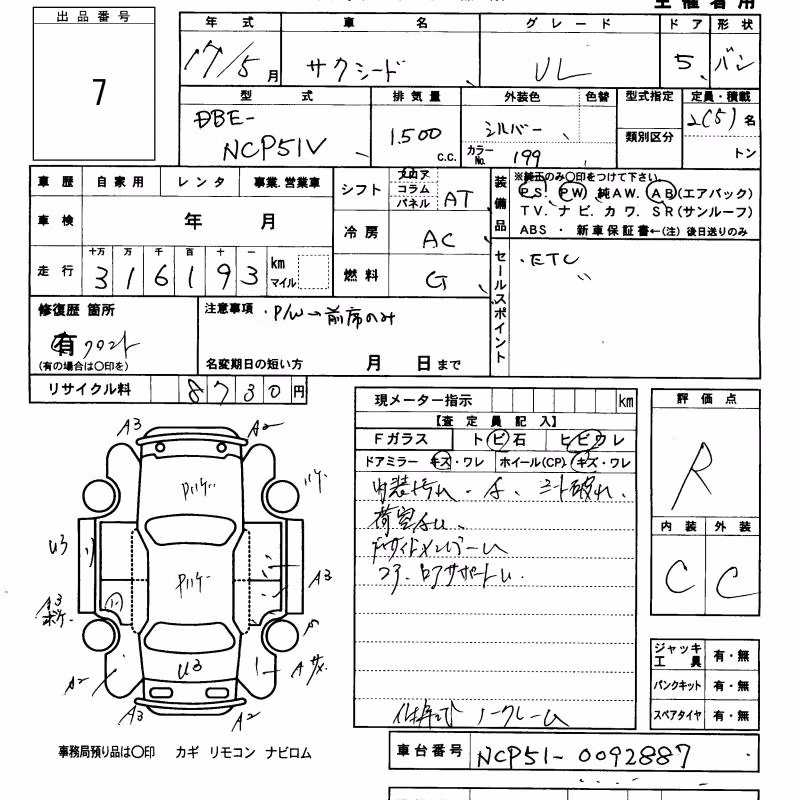 主催者用
出品番号
7
年式 車名 グレード ドア 形状
17/5月 サクシード UL 5 バン
型式 排気量 外装色 色替 型式指定 定員・積載
DBE-
NCP51V 1.500 c.c. シルバー 2(5)名
カラーNo. 199 類別区分 トン
車歴 自家用 レンタ 事業.営業車
シフト フロア コラム パネル AT
車検 年 月
冷房 AC
走行 十万 万 千 百 十 一
3 1 6 1 9 3 km マイル
燃料 G
装備品 ※純正のみ〇印をつけて下さい.
P.S. PW 純AW. AB(エアバック)
TV. ナビ. カワ. SR(サンルーフ)
ABS ・ 新車保証書←(注) 後日送りのみ
セールスポイント
・ETC
修復歴 箇所
有 フロント
(有の場合は〇印を)
注意事項 ・P/W→前席のみ
名変期日の短い方 月 日まで
リサイクル料 8730円
現メーター指示 km
【査定員記入】
Fガラス トビ石 ヒビワレ
ドアミラー キズ・ワレ ホイール(CP) キズ・ワレ
内装汚れ・
荷室
コア.ロアサポートム.
ノークレーム
評価点
R
内装 外装
C C
ジャッキ工具 有・無
パンクキット 有・無
スペアタイヤ 有・無
A3 A2
U3
A3
A3
ボケ
U3
A2
A3 A2
事務局預り品は〇印 カギ リモコン ナビロム
車台番号 NCP51-0092887